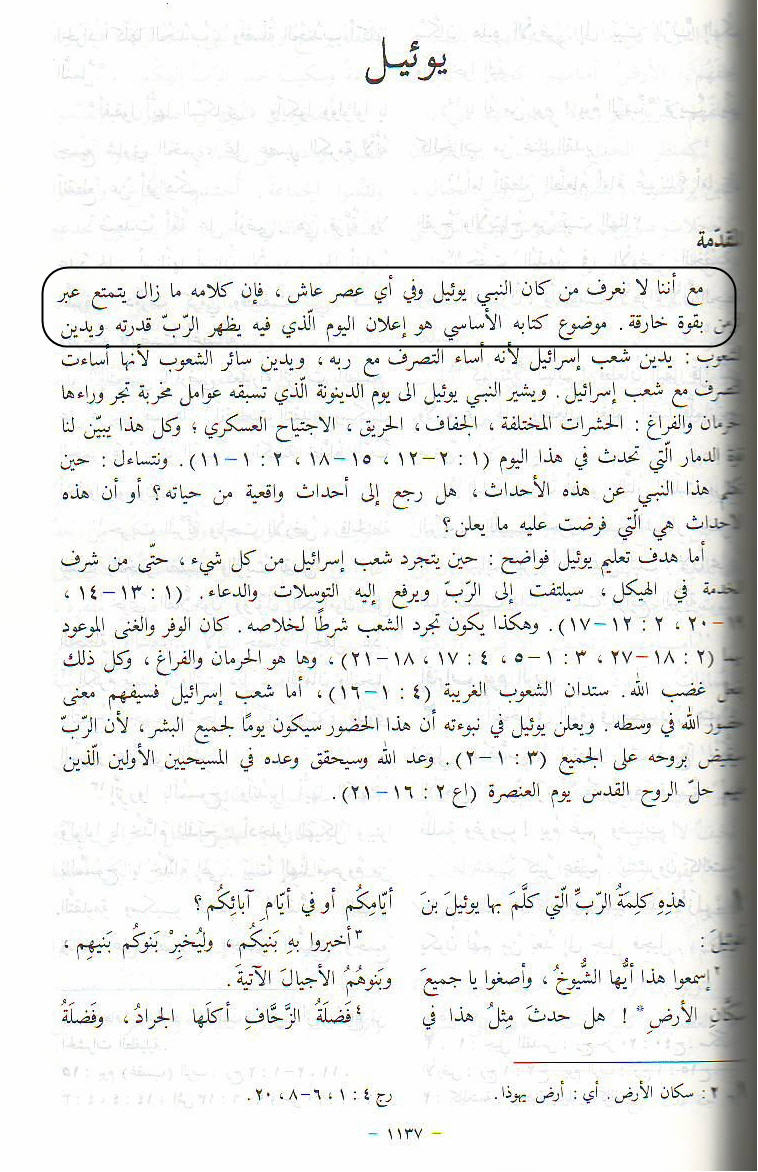 يوئيل
المقدّمة
مع أننا لا نعرف من كان النبي يوئيل وفي أي عصر عاش ، فإن كلامه ما زال يتمتع عبر
بقوة خارقة . موضوع كتابه الأساسي هو إعلان اليوم الّذي فيه يظهر الرّبّ قدرته ويدين
الشعوب : يدين شعب إسرائيل لأنه أساء التصرف مع ربه ، ويدين سائر الشعوب لأنها أساءت
التصرف مع شعب إسرائيل . ويشير النبي يوئيل الى يوم الدينونة الّذي تسبقه عوامل مخربة تجر وراءها
الحرمان والفراغ : الحشرات المختلفة ، الجفاف ، الحريق ، الاجتياح العسكري ؛ وكل هذا يبيّن لنا
قوة الدمار الّتي تحدث في هذا اليوم (١ : ٢–١٢ ، ١٥–١٨ ، ٢ : ١–١١) . ونتساءل : حين
هذا النبي عن هذه الأحداث ، هل رجع إلى أحداث واقعية من حياته ؟ أو أن هذه
الاحداث هي الّتي فرضت عليه ما يعلن ؟
أما هدف تعليم يوئيل فواضح : حين يتجرد شعب إسرائيل من كل شيء ، حتّى من شرف
الخدمة في الهيكل ، سيلتفت إلى الرّبّ ويرفع إليه التوسلات والدعاء . (١ : ١٣–١٤ ،
–٢٠ ، ٢ : ١٢–١٧) . وهكذا يكون تجرد الشعب شرطًا لخلاصه . كان الوفر والغنى الموعود
بها (٢ : ١٨–٢٧ ، ٣ : ١–٥ ، ٤ : ١٧ ، ١٨–٢١) ، وها هو الحرمان والفراغ ، وكل ذلك
غضب الله . ستدان الشعوب الغريبة (٤ : ١–١٦) ، أما شعب إسرائيل فسيفهم معنى
حضور الله في وسطه . ويعلن يوئيل في نبوءته أن هذا الحضور سيكون يومًا لجميع البشر ، لأن الرّبّ
سيفيض بروحه على الجميع (٣ : ١–٢) . وعد الله وسيحقق وعده في المسيحيين الأولين الّذين
حلّ الروح القدس يوم العنصرة (اع ٢ : ١٦–٢١) .
هذِهِ كلِمَةُ الرّبِّ الّتي كلَّمَ بها يوئيلَ بنَ
:
٢إسمعوا هذا أيُّها الشُّيوخُ ، وأصغوا يا جميعَ
سكَّانِ الأرضِ* ! هل حدثَ مِثلُ هذا في
أيّامِكُم أو في أيّامِ آبائِكُم ؟
٣أخبِروا بهِ بَنيكُم ، وليُخبِرْ بَنوكُم بَنيهِم ،
وبَنوهُمُ الأجيالَ الآتيةَ .
٤فَضلَةُ الزَّحَّافِ أكلَها الجرادُ ، وفَضلَةُ
٢ : سكان الأرض . أي : أرض يهوذا .
رج ٤ : ١ ، ٦–٨ ، ٢٠ .
– ١١٣٧ –